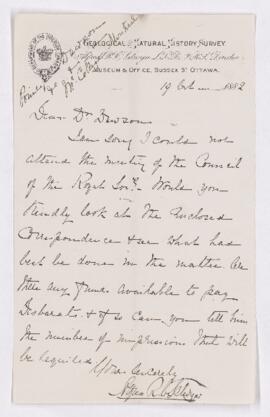 GEOLOGICAL & NATURAL HISTORY SURVEY
MUSEUM & OFFICE, SUSSEX ST OTTAWA.
19 Oct 1882
Dear Dr Dawson
I am sorry I could not
attend the meeting of the Council
of the Royal Socy. Would you
kindly look at the enclosed
correspondence & see what had
best be done in the matter. Are
there any funds available to pay
& if so can you tell him
the number of impressions that will
be required
Yours sincerely